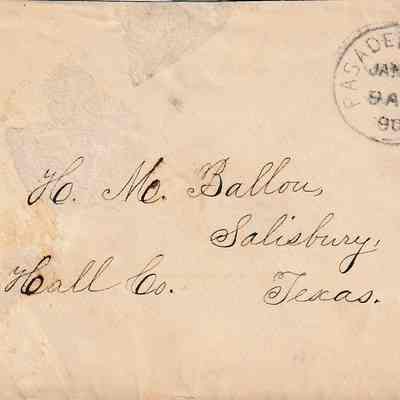 PASADE
JAN
9 A
90
H. M. Ballou,
Salisbury,
Hall Co. Texas.